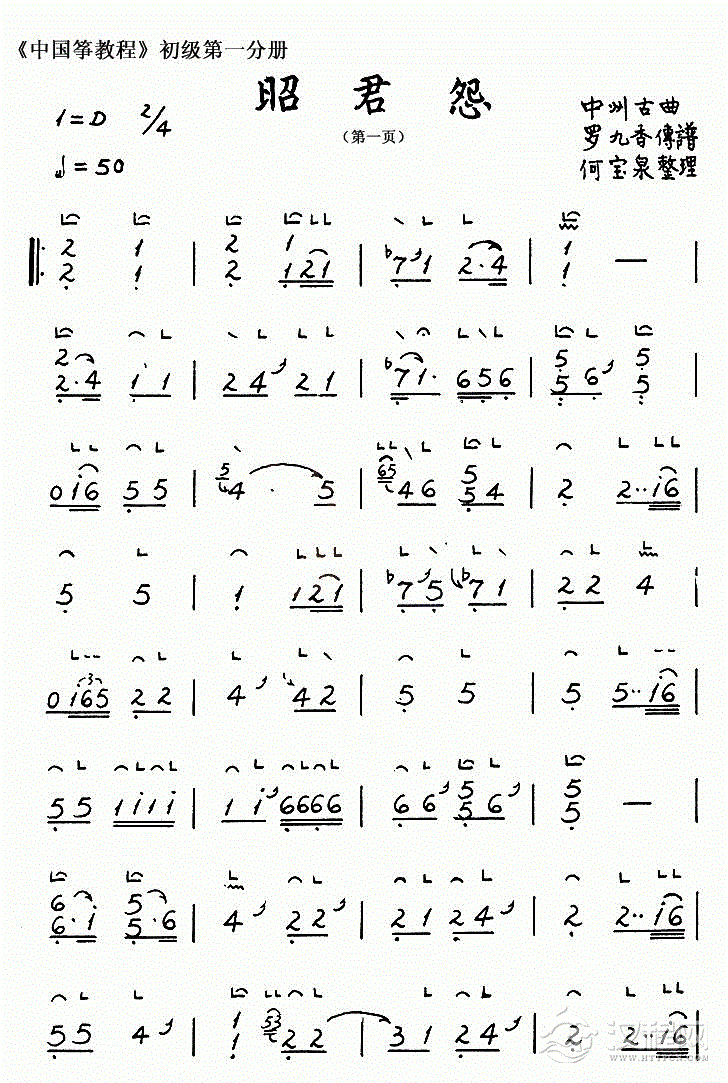 《中国筝教程》初级第一分册
昭君怨
(第一页)
1=D 2/4
♩=50
中州古曲
罗九香傳譜
何宝泉整理
2 2 1 1 | 2 2 1 1 2 1 | ♭7 1 2·4 | 1 1 — |
2 2·4 1 1 | 2 4 2 1 | ♭7 1· 6 5 6 | 5 5 6 5 5 |
0 i 6 5 5 | 5 4 · 5 | 6 5 4 6 5 5 4 | 2 2·· i 6 |
5 5 | 1 1 2 1 | ♭7 5 ♭7 1 | 2 2 4 |
0 i 6 5 2 2 | 4 4 2 | 5 5 | 5 5·· i 6 |
5 5 1 i 1 i | 1 i 6 6 6 6 | 6 6 5 5 6 | 5 5 — |
6 6·i 5 5·6 | 4 2 2 | 2 1 2 4 | 2 2·· i 6 |
5 5 4 | 1 1 5 3 2 2 | 3 1 2 4 | 2 2·· i 6 |
HTTP://WWW.HTTCN.COM